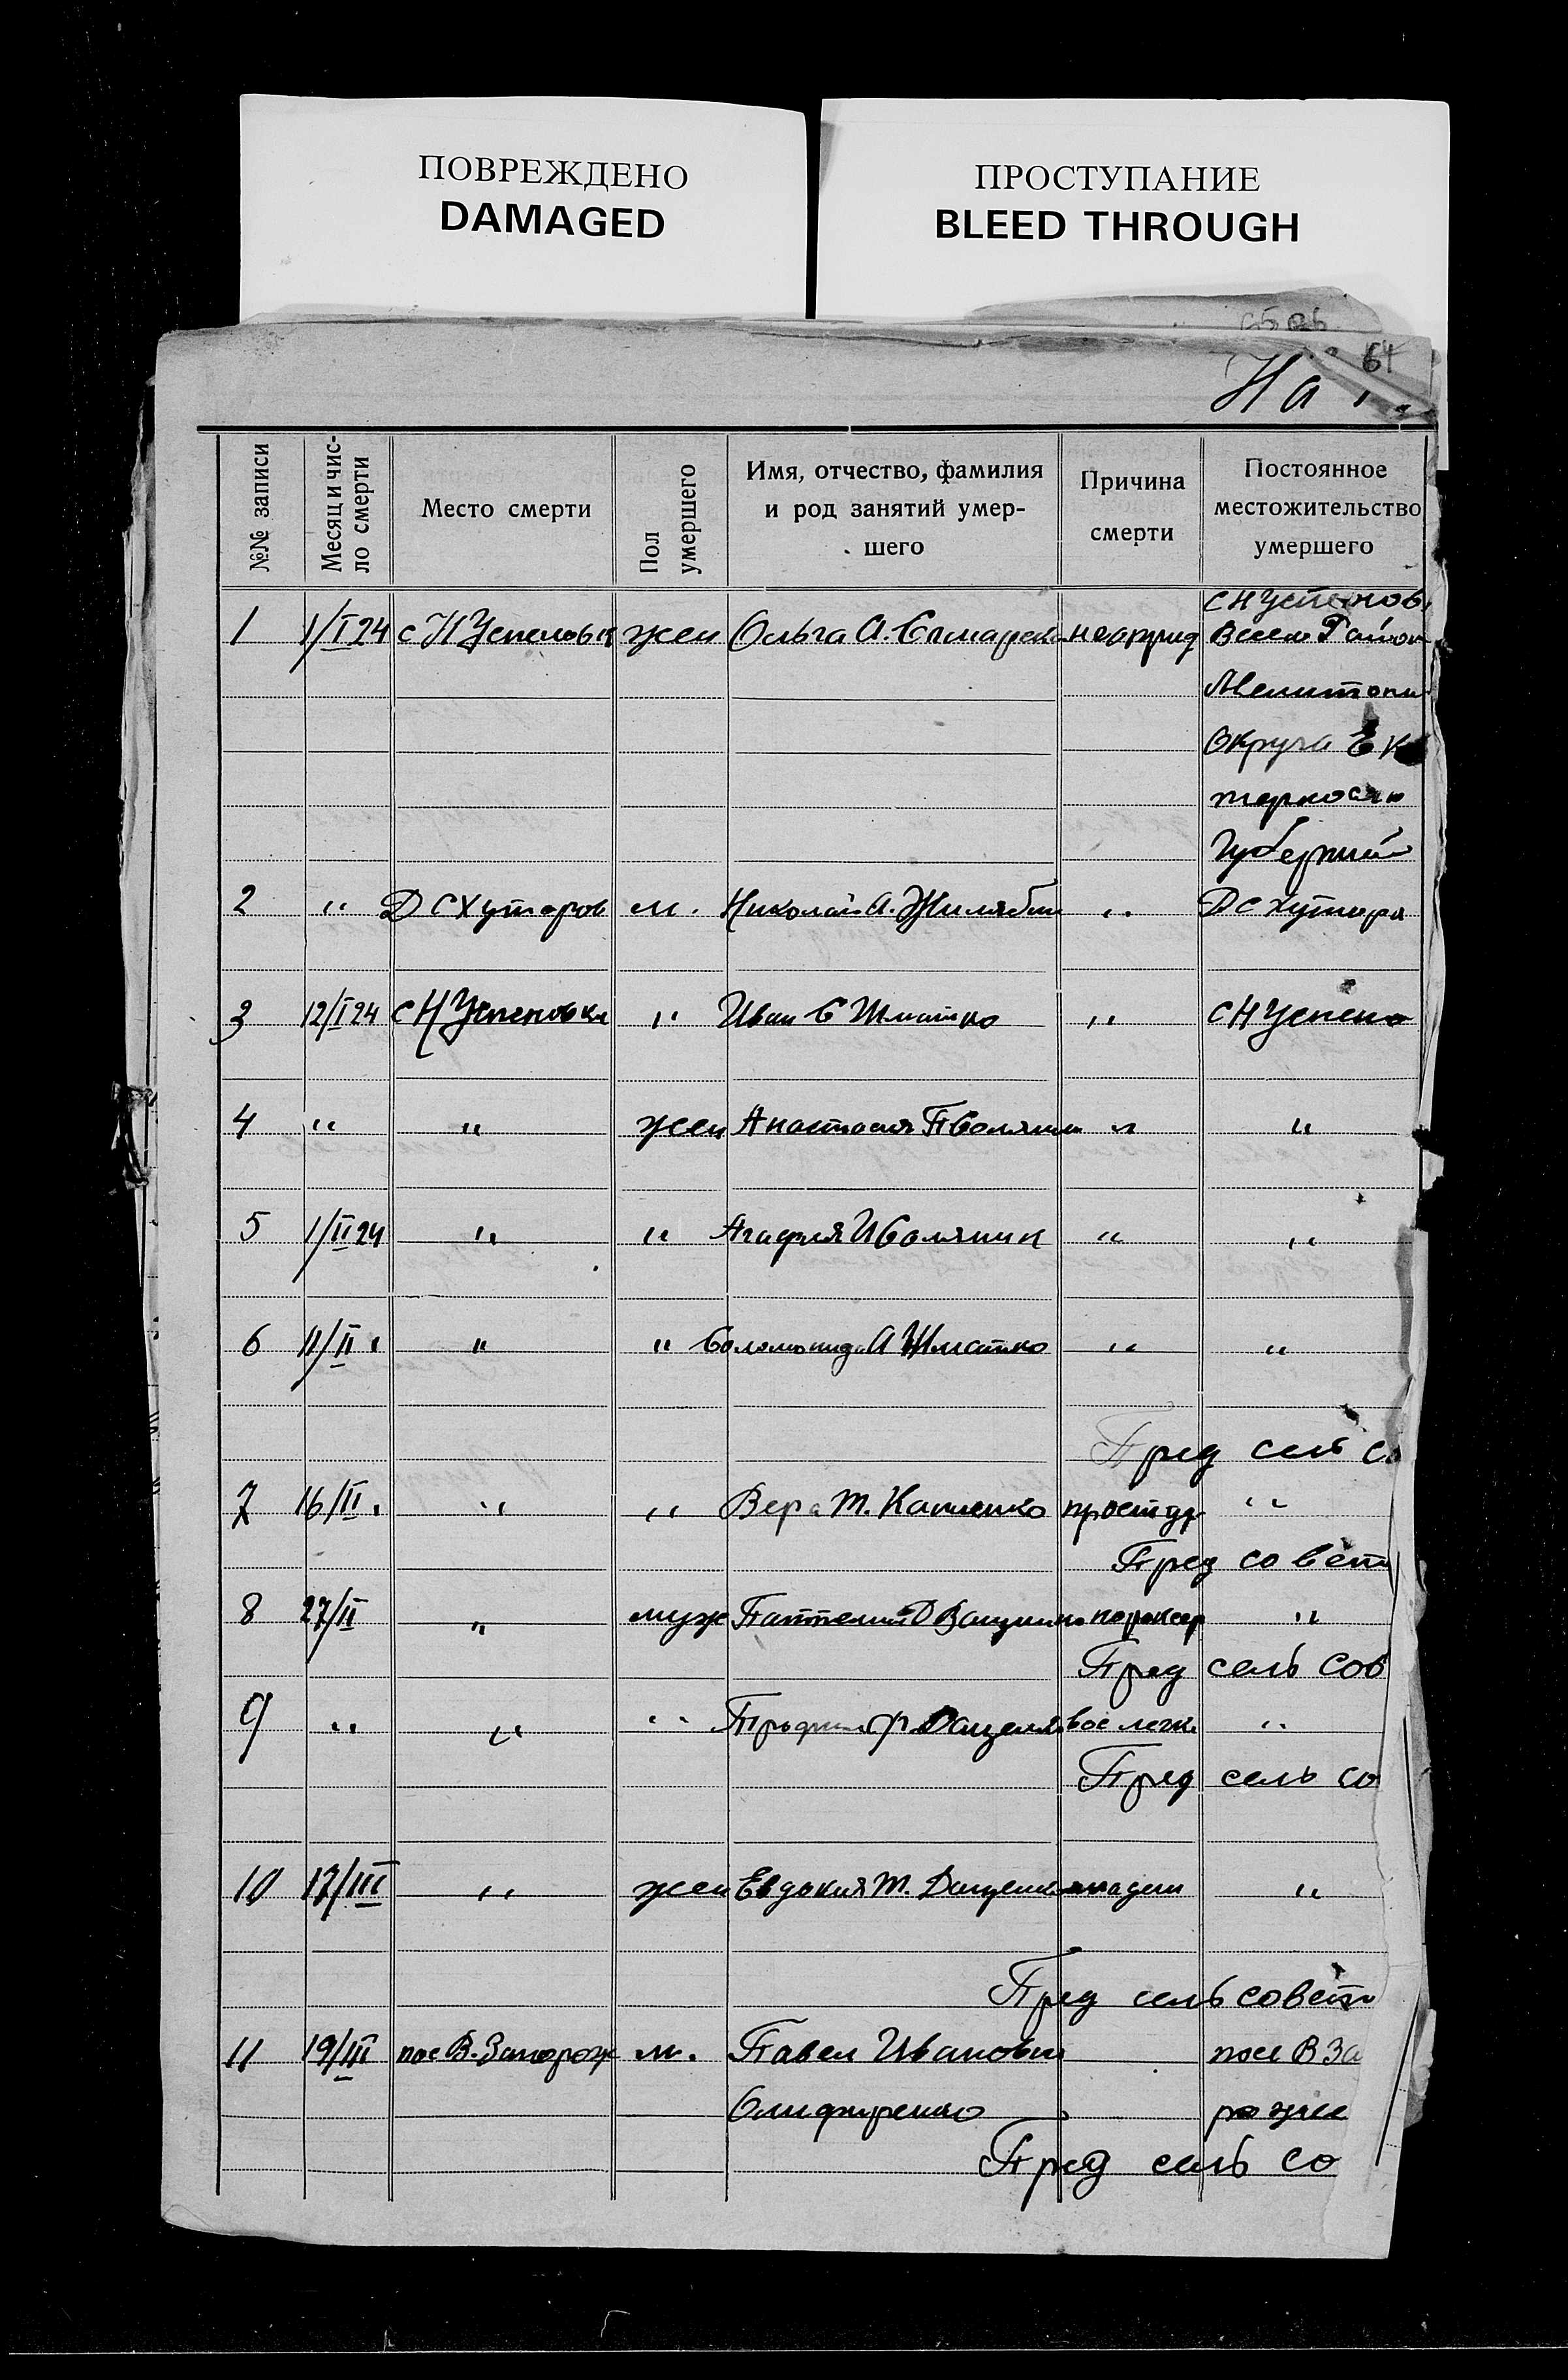 ПОВРЕЖДЕНО
DAMAGED
ПРОСТУПАНИЕ
BLEED THROUGH
64
На
№№ записи
Месяц и чис-
ло смерти
Место смерти
Пол
умершего
Имя, отчество, фамилия
и род занятий умер-
шего
Причина
смерти
Постоянное
местожительство
умершего
с Н Успенов
1 1/I 24 с Н Успеновка жен Ольга А. Район
Мелитопи
Округа Ек
Губерний
2 " Д С Хуторов м. Николай А. " Д С хутора
3 12/I 24 с Н Успеновка " Иван С Шматко " с Н Успено
4 " " жен Анастасия П " "
5 1/II 24 " " Агафия И " "
6 11/II " " " Соломонида А Шматко " "
Пред сель с
7 16/II " " " Вера Т. простуд "
Пред совет
8 27/II " муж "
Пред сель сов
9 " " " Ф Даценко вос легк "
Пред сель со
10 17/III " жен Евдокия Т. Даценко младен "
Пред сель совет
11 19/III пос В. Запорож м. Павел Иванович пос В За
рожье
Пред сель со